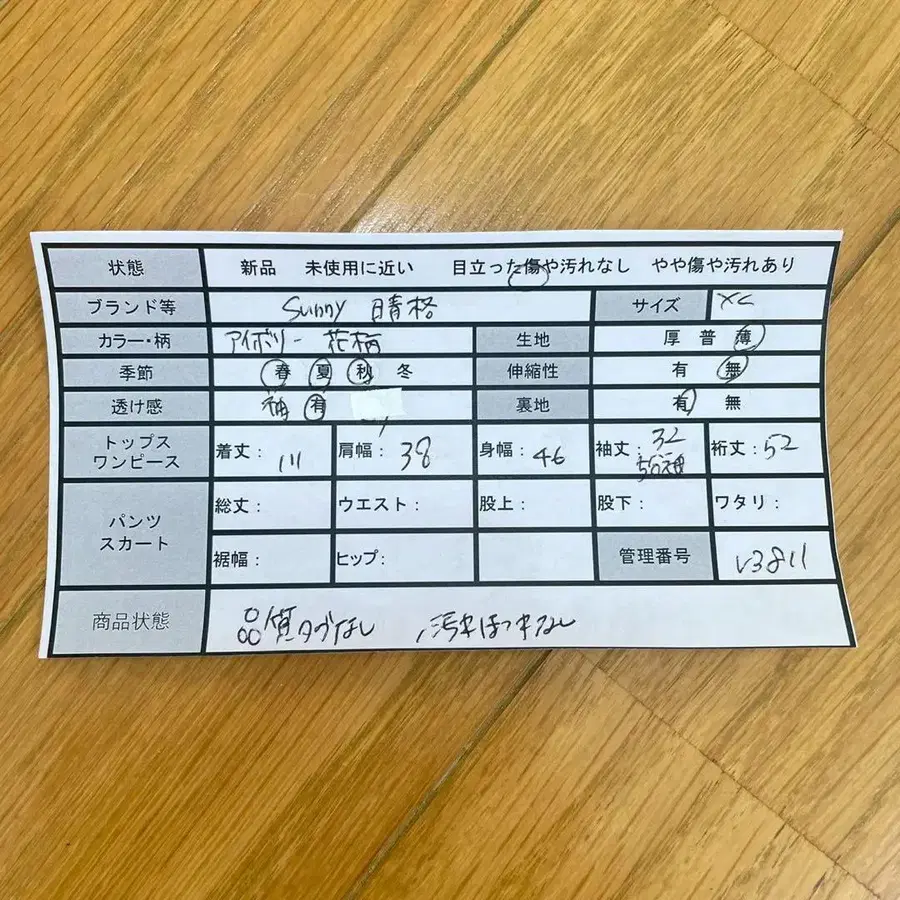 状態 新品 未使用に近い 目立った傷や汚れなし やや傷や汚れあり
ブランド等 Sunny 晴格 サイズ
カラー・柄 アイボリー 花柄 生地 厚 普 薄
季節 春 夏 秋 冬 伸縮性 有 無
透け感 袖 有 裏地 有 無
トップス ワンピース 着丈: 111 肩幅: 38 身幅: 46 袖丈: 32 5分袖 裄丈: 52
パンツ スカート 総丈: ウエスト: 股上: 股下: ワタリ:
裾幅: ヒップ: 管理番号 V3811
商品状態 品質タグなし 汚れほつれなし